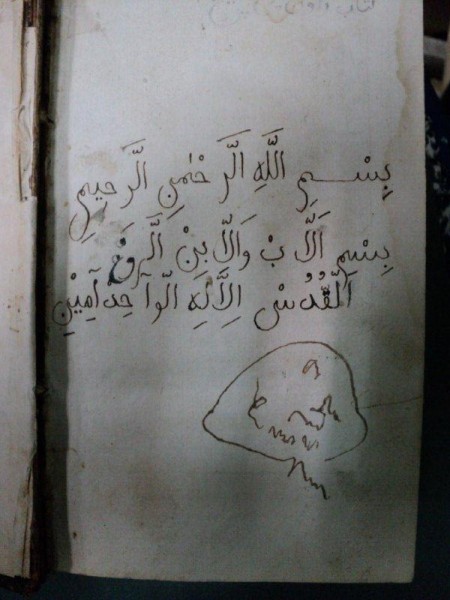 بِسْمِ اللَّهِ الَّرَحْمٰنِ الَّرَحِيمِ
بِسْمِ اَلَّابْ وَالَّابِنْ
الَّقُدُسْ الِالَّهِ الّوآحِدْ آمِيْنِ